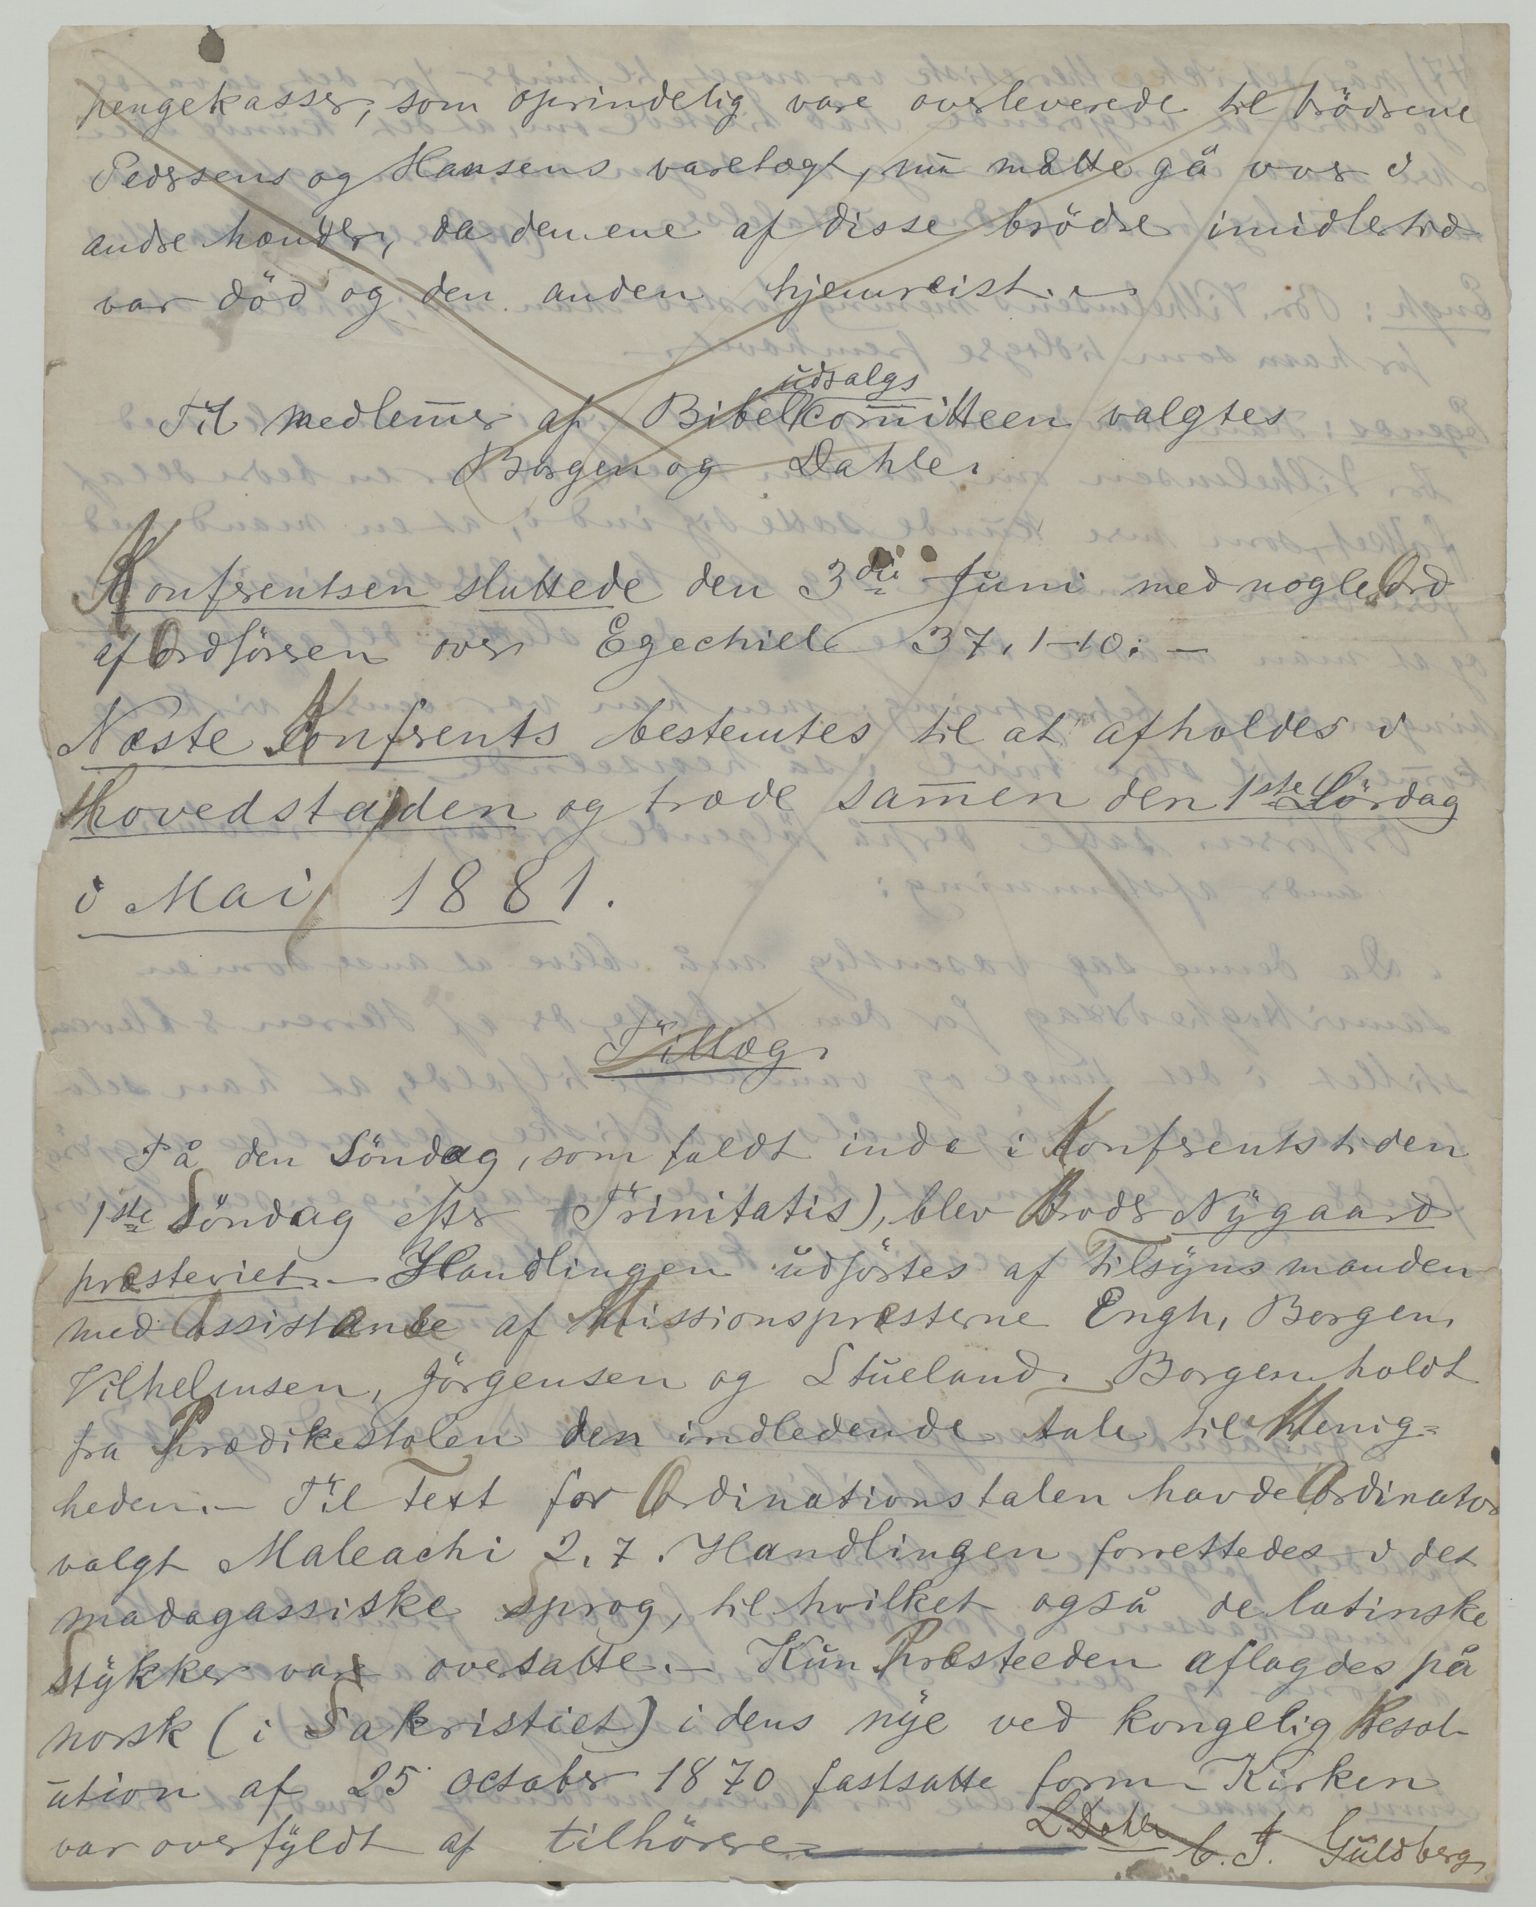 pengekasser, som oprindelig vare overleverede til brödrene
Pedersens og Hansens varetægt, nu måtte gå over i
andre hænder, da den ene af disse brödre imidlertid
var död og den anden hjemreist. –
udsalgs
Til medlem̅er af Bibelkom̅itteen valgtes
Borgen og Dahle.
Konferentsen sluttede den 3die Juni med nogle Ord
af Ordföreren over Ezechiel 37, 1-10. –
Næste Konferents bestemtes til at afholdes i
Hovedstaden og træde sam̅en den 1ste Lördag
i Mai 1881.
Tillæg.
På den Söndag, som faldt inde i Konferentstiden
1ste Söndag efter Trinitatis), blev Broder Nygaard
præsteviet. – Handlingen udförtes af Tilsynsmanden
med Assistance af Missionspræsterne Engh, Borgen,
Vilhelmsen, Jörgensen og Stueland. Borgen holdt
fra Prædikestolen den indledende tale til Menig=
heden. – Til Text for Ordinationstalen havde Ordinator
valgt Maleachi 2, 7. Handlingen forrettedes i det
madagassiske Sprog, til hvilket også de latinske
Stykker vare oversatte. – Kun Præsteeden aflagdes på
norsk (i Sakristiet) i dens nye ved kongelig Resol-
ution af 25 october 1870 fastsatte form – Kirken
var overfyldt af tilhörere.
L Dahle C. J. Guldberg